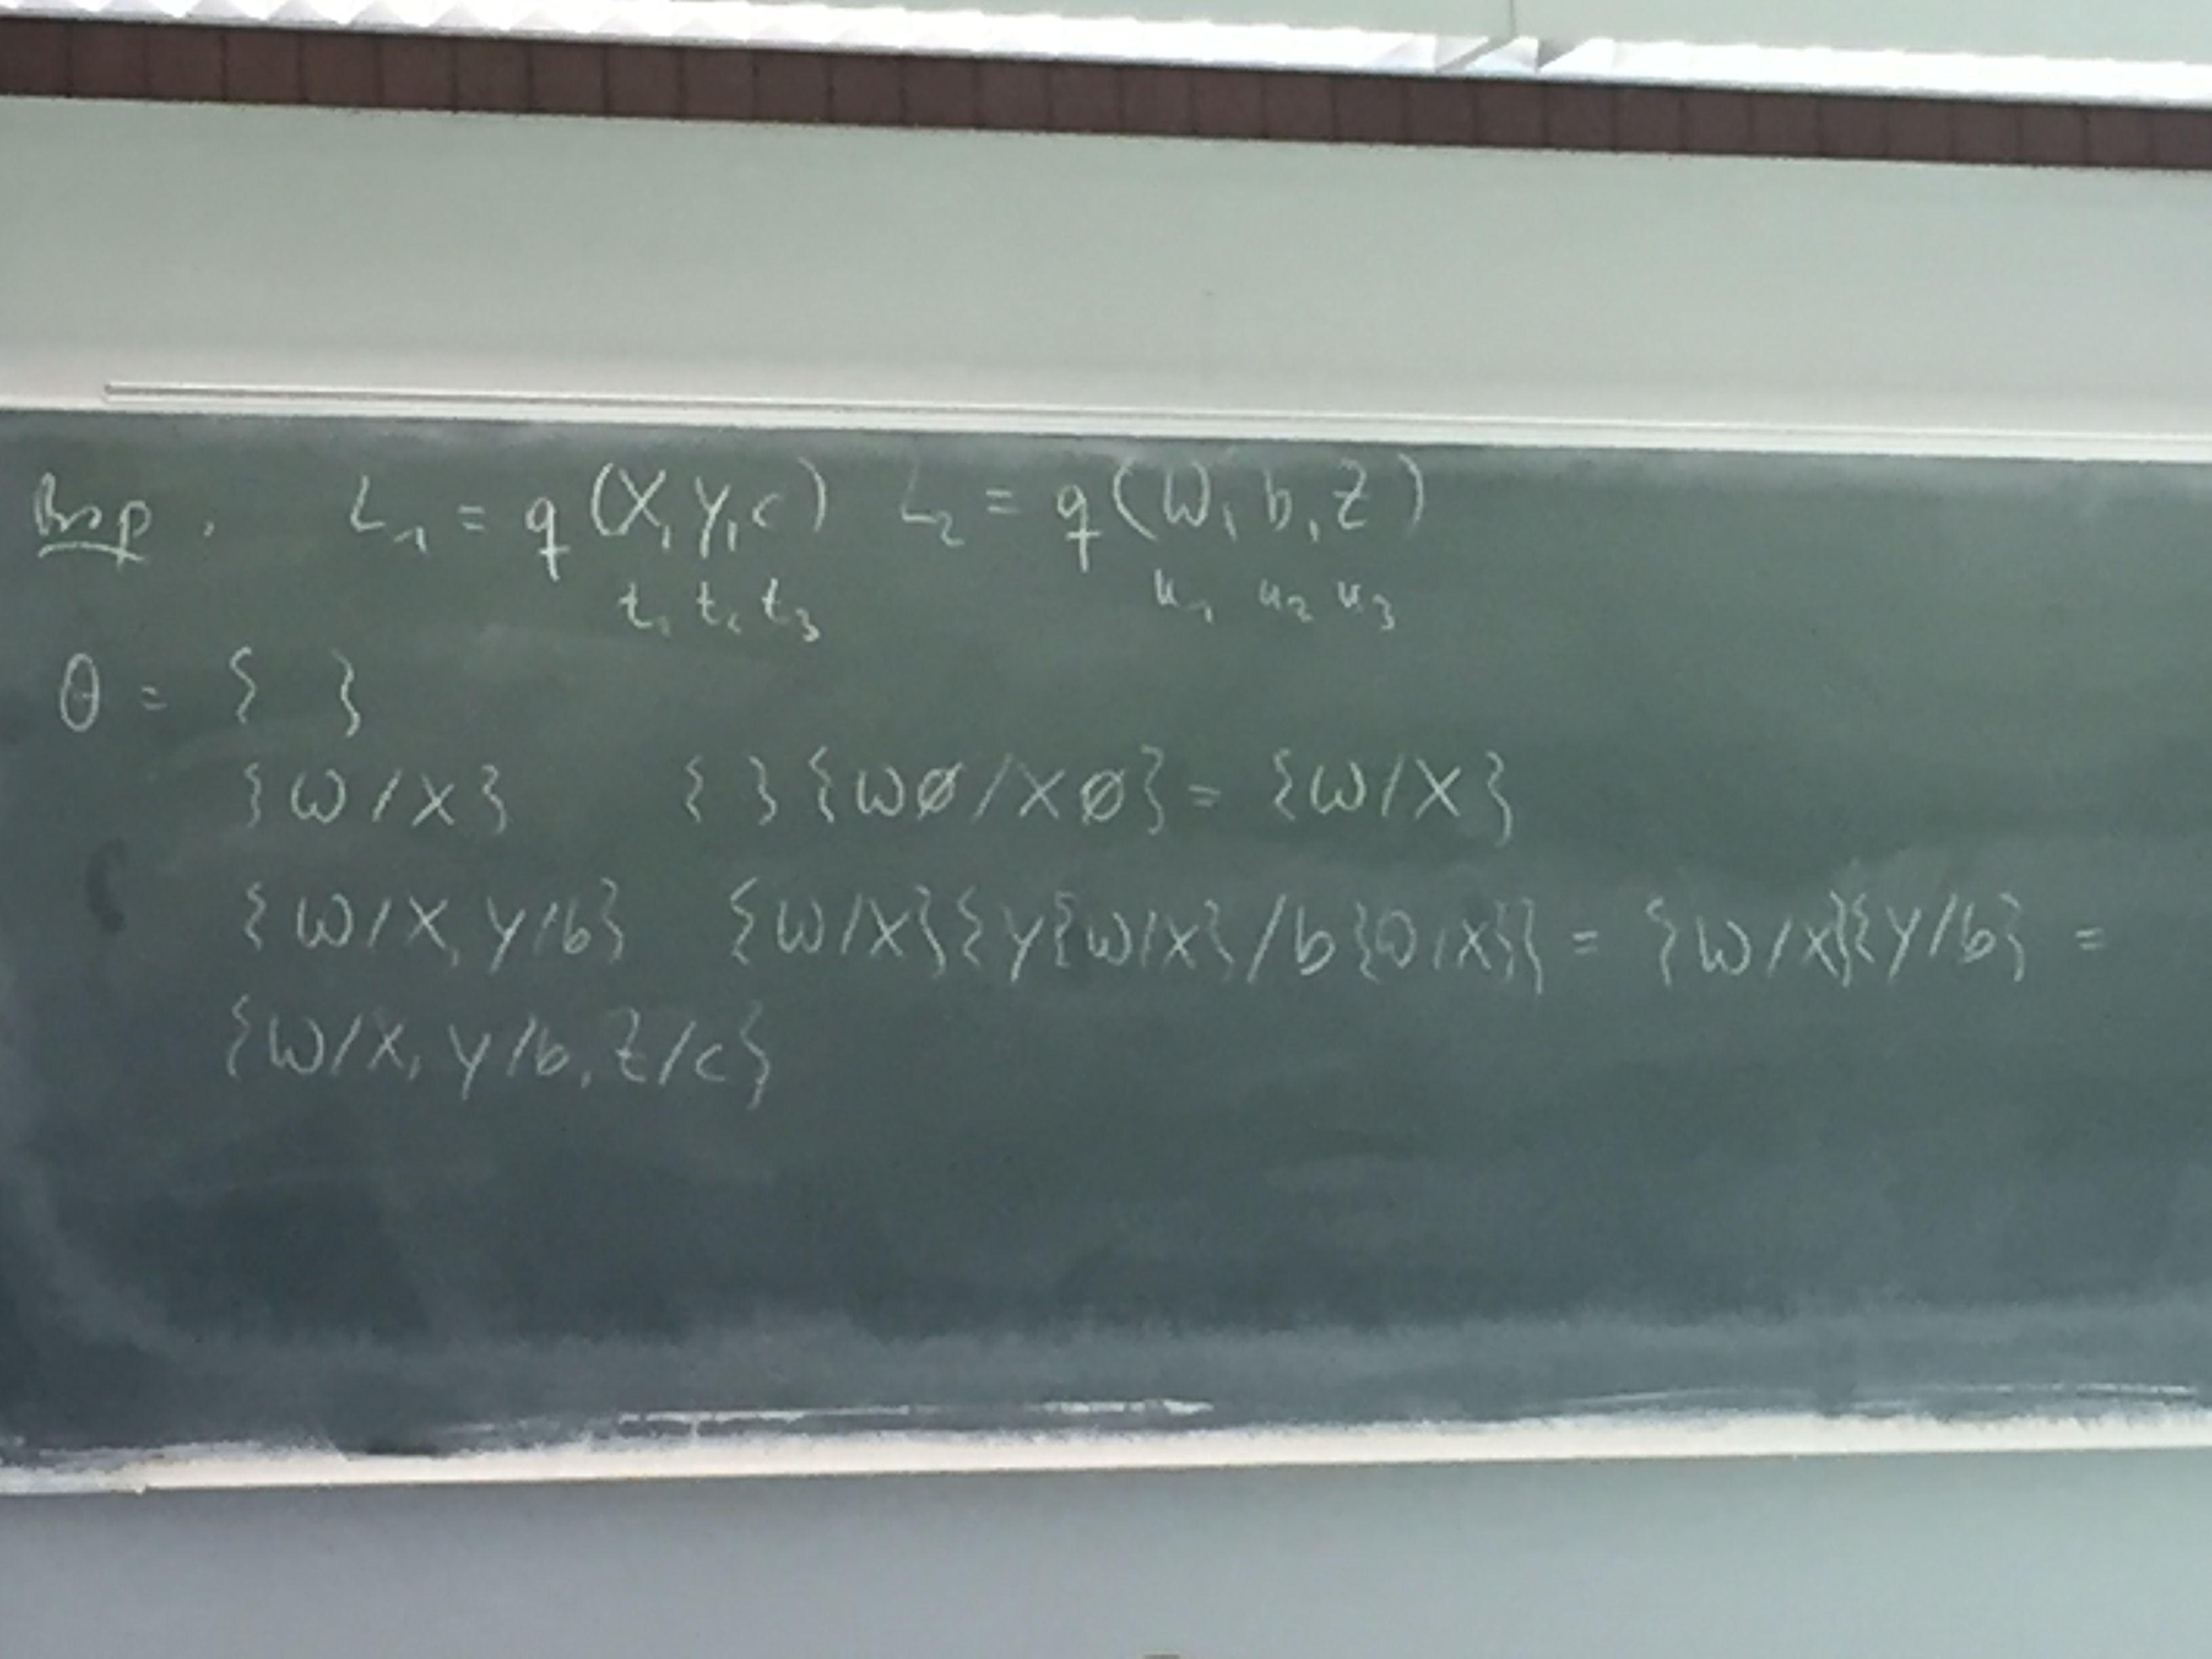 Bsp. L₁ = q(X,Y,c) L₂ = q(W,b,Z)
t₁ t₂ t₃ u₁ u₂ u₃
θ = { }
{W/X} { }{W∅/X∅} = {W/X}
{W/X, Y/b} {W/X}{Y{W/X}/b{W/X}} = {W/X}{Y/b} =
{W/X, Y/b, Z/c}